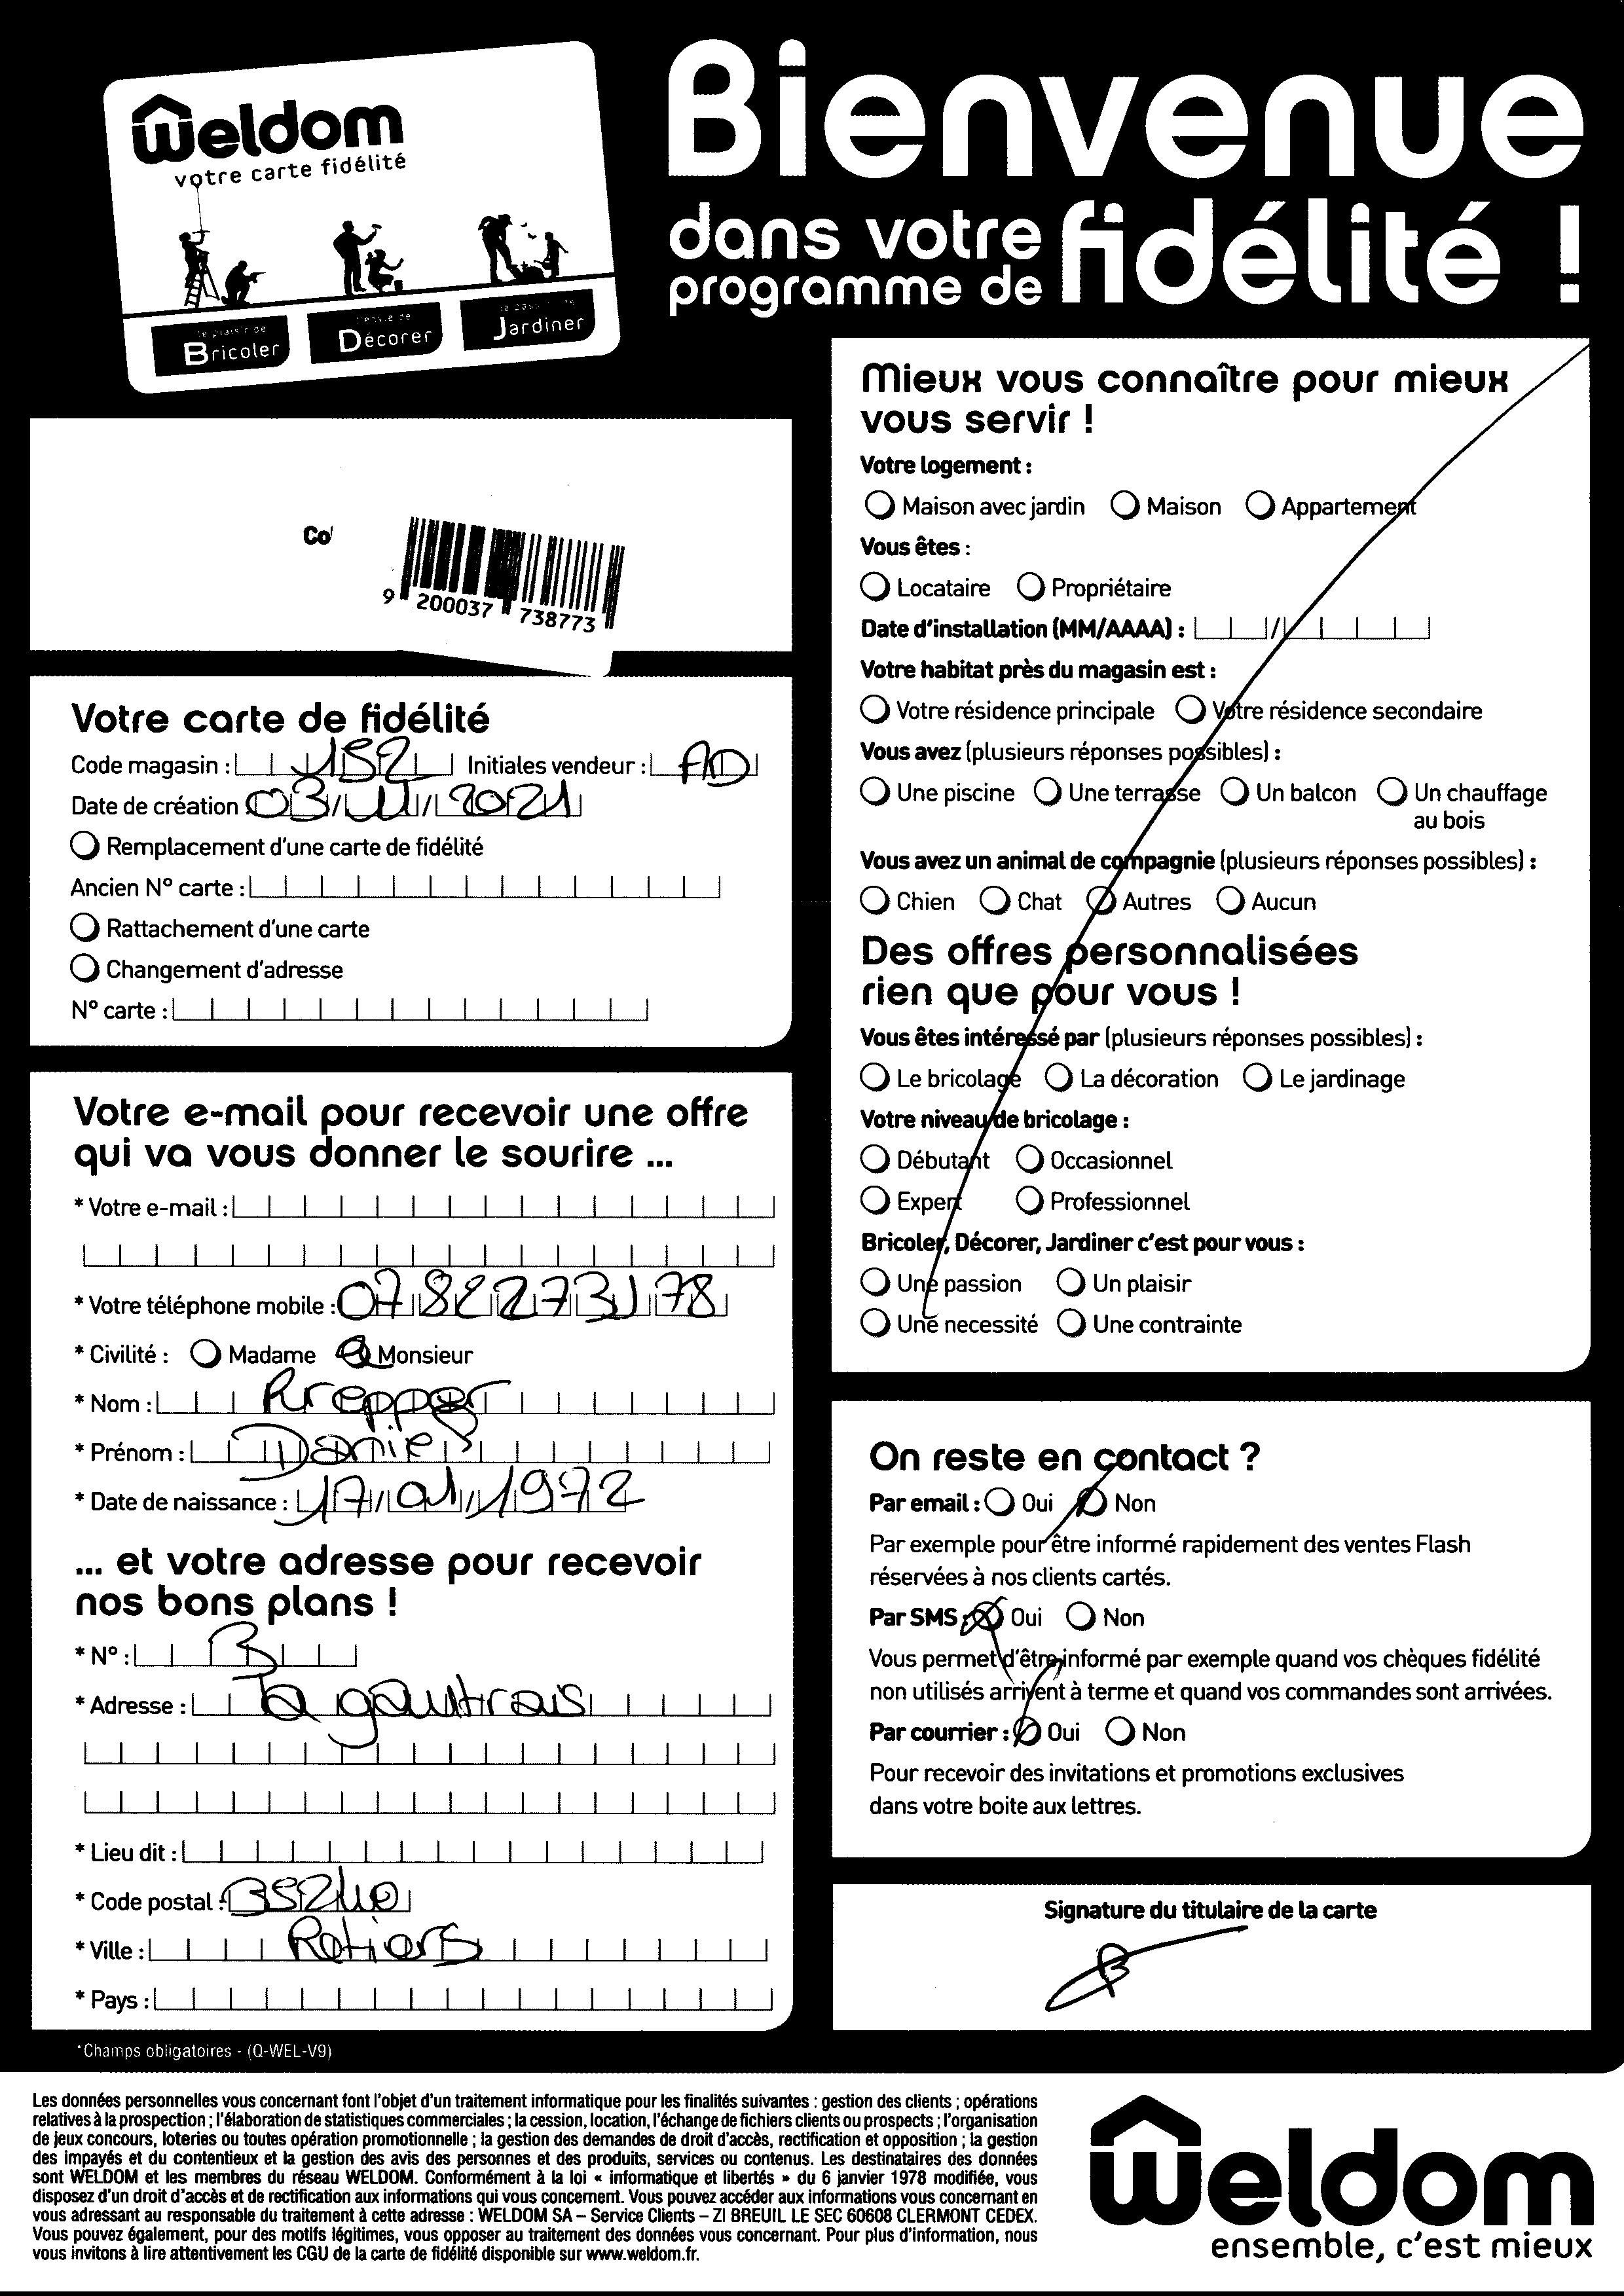 Weldom
votre carte fidélité
le plaisir de
Bricoler
l'envie de
Décorer
Jardiner
Bienvenue
dans votre
programme de fidélité !
Co
9 200037 738773
Votre carte de fidélité
Code magasin : 152 Initiales vendeur : AD
Date de création : 03/11/2021
Remplacement d'une carte de fidélité
Ancien N° carte :
Rattachement d'une carte
Changement d'adresse
N° carte :
Votre e-mail pour recevoir une offre
qui va vous donner le sourire ...
* Votre e-mail :
* Votre téléphone mobile : 0782273178
* Civilité : Madame Monsieur
* Nom : Krepper
* Prénom : Daniel
* Date de naissance : 17/01/1972
... et votre adresse pour recevoir
nos bons plans !
* N° : 3
* Adresse : la gaultrais
* Lieu dit :
* Code postal : 35240
* Ville : Retiers
* Pays :
*Champs obligatoires - (Q-WEL-V9)
Mieux vous connaître pour mieux
vous servir !
Votre logement :
Maison avec jardin Maison Appartement
Vous êtes :
Locataire Propriétaire
Date d'installation (MM/AAAA) : /
Votre habitat près du magasin est :
Votre résidence principale Votre résidence secondaire
Vous avez (plusieurs réponses possibles) :
Une piscine Une terrasse Un balcon Un chauffage
au bois
Vous avez un animal de compagnie (plusieurs réponses possibles) :
Chien Chat Autres Aucun
Des offres personnalisées
rien que pour vous !
Vous êtes intéressé par (plusieurs réponses possibles) :
Le bricolage La décoration Le jardinage
Votre niveau de bricolage :
Débutant Occasionnel
Expert Professionnel
Bricoler, Décorer, Jardiner c'est pour vous :
Une passion Un plaisir
Une necessité Une contrainte
On reste en contact ?
Par email : Oui Non
Par exemple pour être informé rapidement des ventes Flash
réservées à nos clients cartés.
Par SMS : Oui Non
Vous permet d'être informé par exemple quand vos chèques fidélité
non utilisés arrivent à terme et quand vos commandes sont arrivées.
Par courrier : Oui Non
Pour recevoir des invitations et promotions exclusives
dans votre boite aux lettres.
Signature du titulaire de la carte
Les données personnelles vous concernant font l'objet d'un traitement informatique pour les finalités suivantes : gestion des clients ; opérations
relatives à la prospection ; l'élaboration de statistiques commerciales ; la cession, location, l'échange de fichiers clients ou prospects ; l'organisation
de jeux concours, loteries ou toutes opération promotionnelle ; la gestion des demandes de droit d'accès, rectification et opposition ; la gestion
des impayés et du contentieux et la gestion des avis des personnes et des produits, services ou contenus. Les destinataires des données
sont WELDOM et les membres du réseau WELDOM. Conformément à la loi « informatique et libertés » du 6 janvier 1978 modifiée, vous
disposez d'un droit d'accès et de rectification aux informations qui vous concernent. Vous pouvez accéder aux informations vous concernant en
vous adressant au responsable du traitement à cette adresse : WELDOM SA – Service Clients – ZI BREUIL LE SEC 60608 CLERMONT CEDEX.
Vous pouvez également, pour des motifs légitimes, vous opposer au traitement des données vous concernant. Pour plus d'information, nous
vous invitons à lire attentivement les CGU de la carte de fidélité disponible sur www.weldom.fr.
Weldom
ensemble, c'est mieux